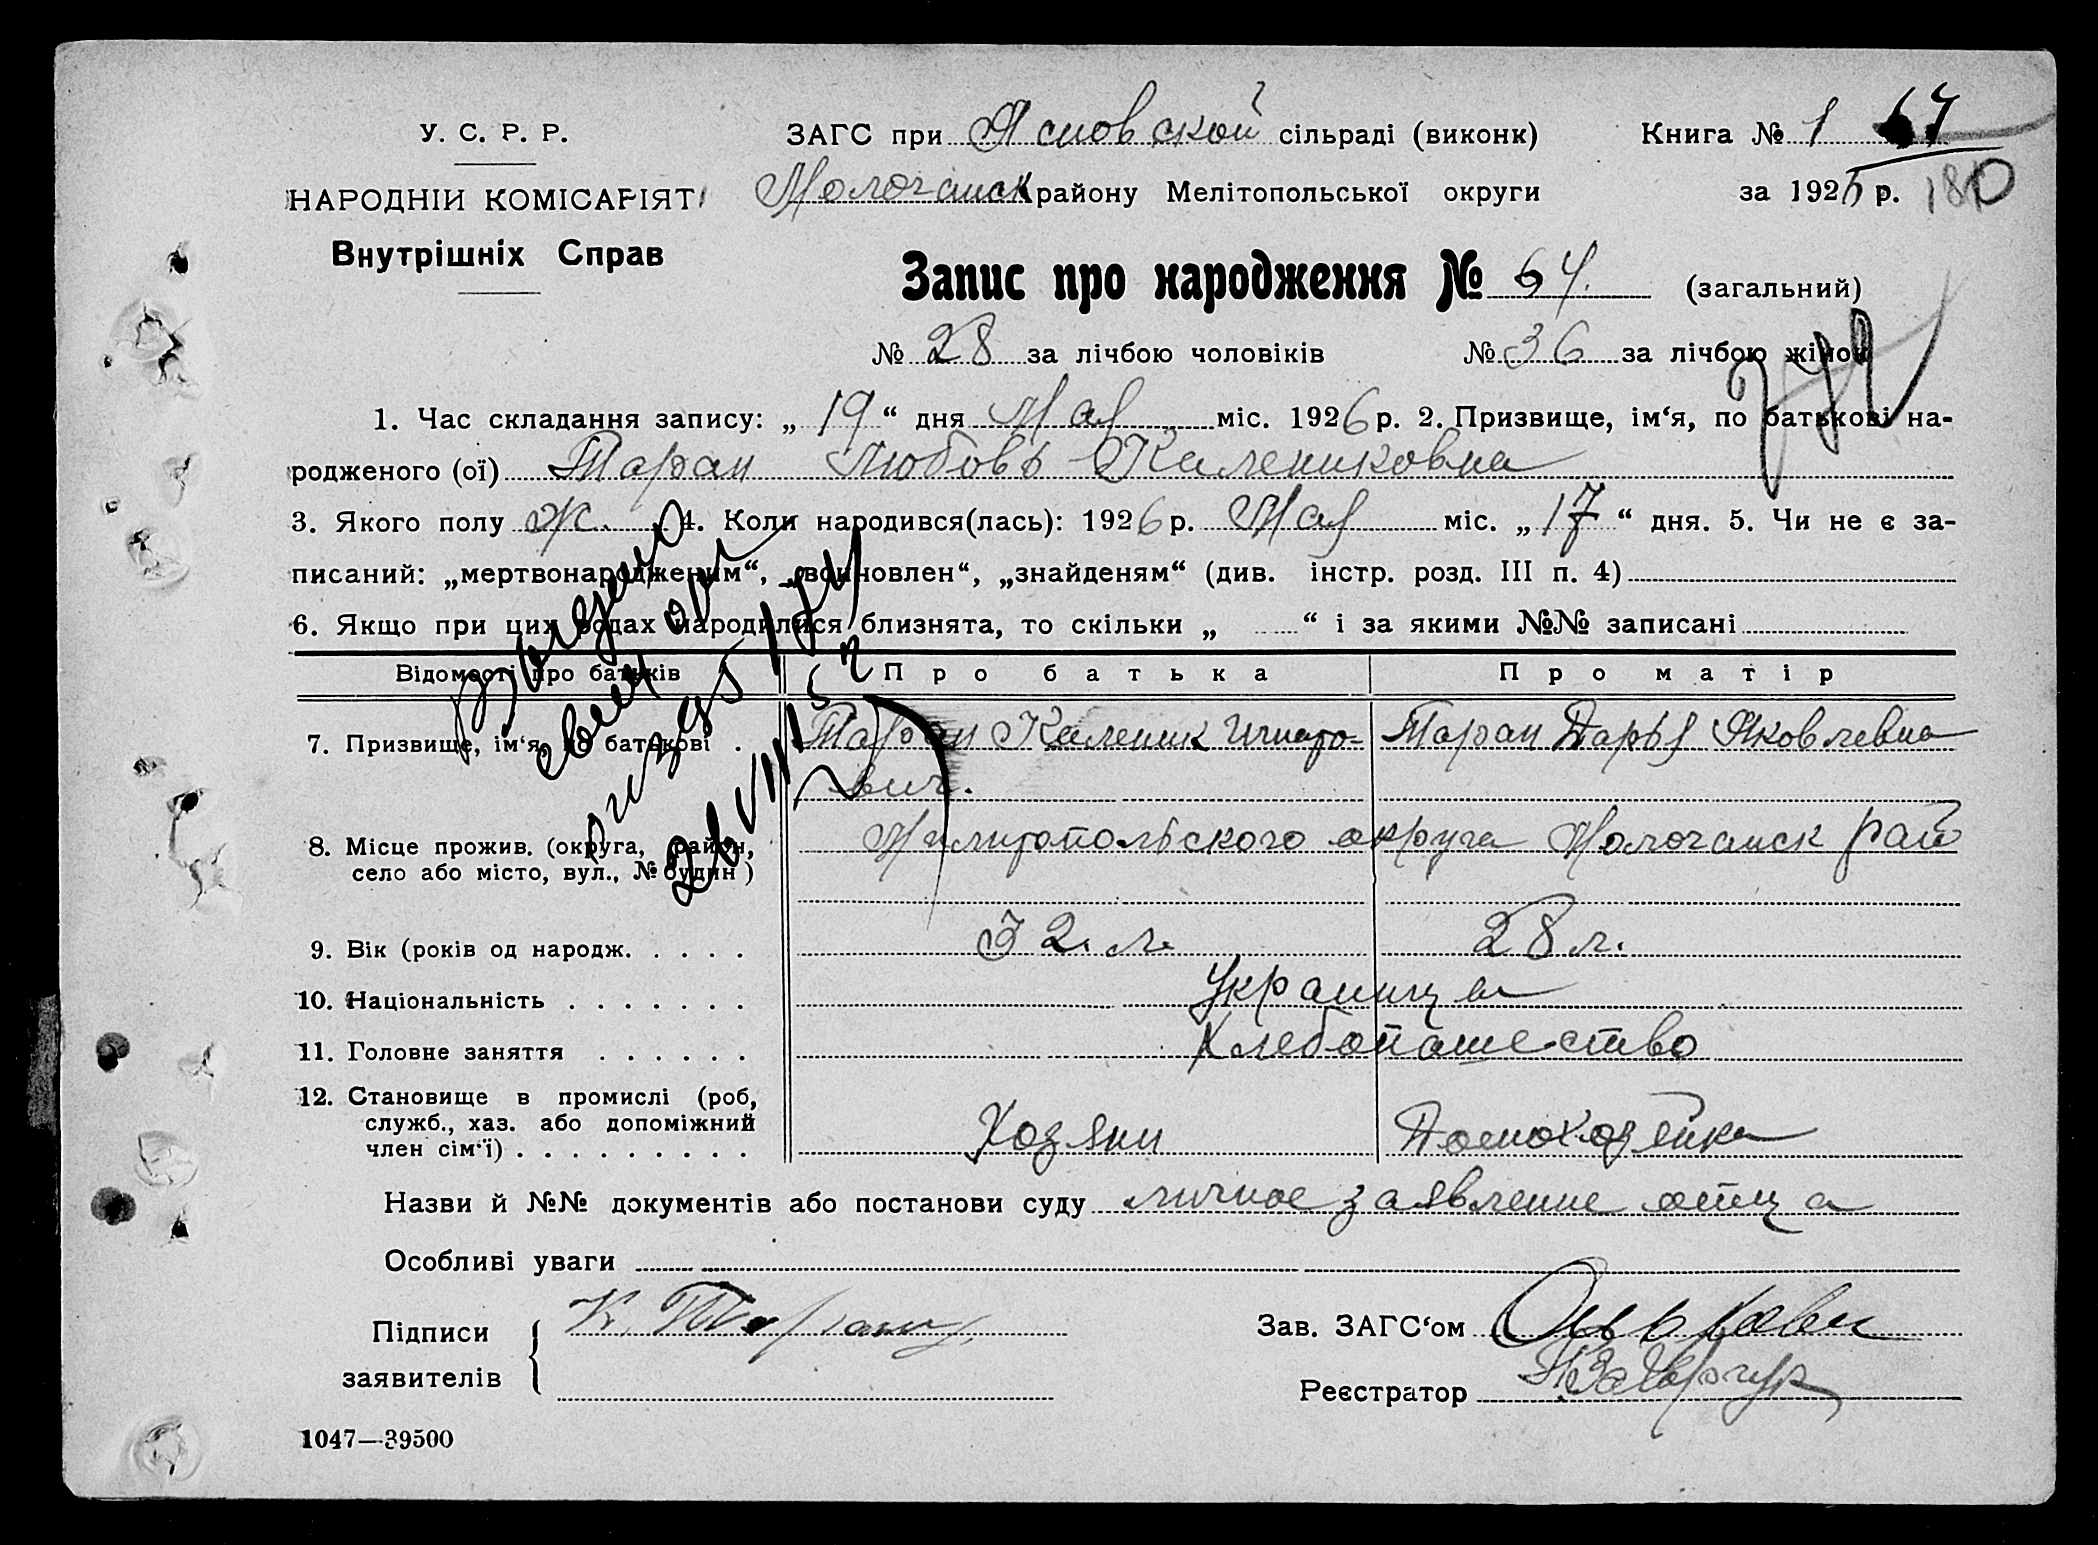 У. С. Р. Р.
НАРОДНІЙ КОМІСАРІЯТ
Внутрішніх Справ
ЗАГС при Ясновской сільраді (виконк)
Молочанск району Мелітопольської округи
Книга № 1 64
за 1926 р. 180
Запис про народження № 64. (загальний)
№ 28 за лічбою чоловіків № 36 за лічбою жінок
1. Час складання запису: „ 19 “ дня Мая міс. 1926 р. 2. Призвище, ім‘я, по батькові на-
родженого (ої) Таран Любовь Калениковна
3. Якого полу Ж. 4. Коли народився(лась): 1926 р. Мая міс. „ 17 “ дня. 5. Чи не є за-
писаний: „мертвонародженим“, „ “, „знайденям“ (див. інстр. розд. III п. 4)
6. Якщо при цих родах народилися близнята, то скільки „ “ і за якими №№ записані
Відомості про батьків Про батька Про матір
7. Призвище, ім‘я, по батькові . Таран Каленик Игнато- Таран Дарья Яковлевна
вич.
8. Місце прожив. (округа, район, Милитопольского округа Молочанск рай
село або місто, вул., № будин )
9. Вік (років од народж. . . . . 32. л. 28 л.
10. Національність . . . . . . . Украинца
11. Головне заняття . . . . . . Хлебопашество
12. Становище в промислі (роб,
служб., хаз. або допоміжний Хозяин Домохозяйка
член сім‘ї) . . . . . . . . .
Назви й №№ документів або постанови суду личное заявление отца
Особливі уваги
Підписи К. Таран
заявителів
Зав. ЗАГС‘ом
Реєстратор
1047—39500